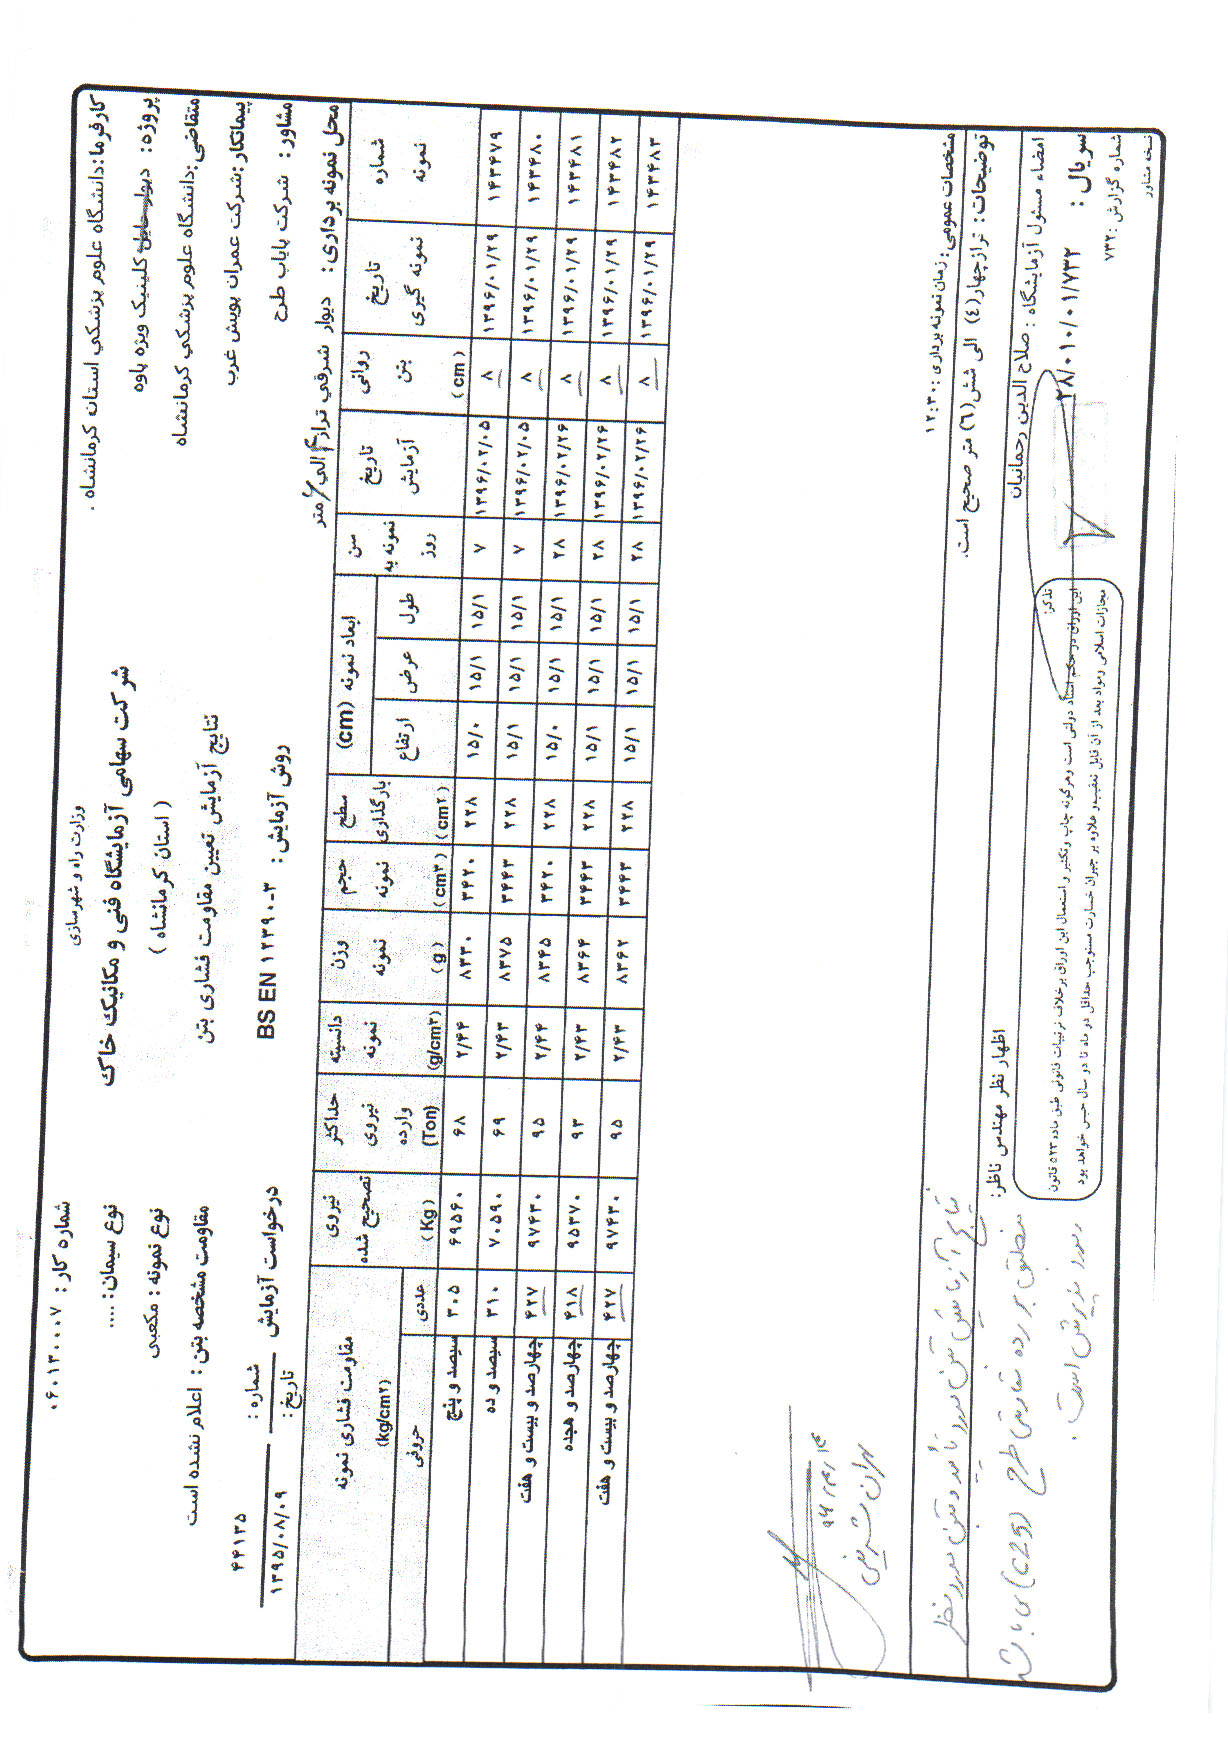 وزارت راه و شهرسازی
شرکت سهامی آزمایشگاه فنی و مکانیک خاک
( استان کرمانشاه )
نتایج آزمایش تعیین مقاومت فشاری بتن
روش آزمایش : BS EN ۱۲۳۹۰-۳
کارفرما: دانشگاه علوم پزشکی استان کرمانشاه .
پروژه: دیوار حایل کلینیک ویژه پاوه
متقاضی: دانشگاه علوم پزشکی کرمانشاه
پیمانکار: شرکت عمران پویش غرب
مشاور : شرکت پایاب طرح
محل نمونه برداری : دیوار شرقی تراز ۴ الی ۶ متر
شماره کار : ۰۶۰۱۳۰۰۰۷
نوع سیمان: ....
نوع نمونه : مکعبی
مقاومت مشخصه بتن : اعلام نشده است
درخواست آزمایش
شماره : ۴۴۱۳۵
تاریخ : ۱۳۹۵/۰۸/۰۹
شماره نمونه | تاریخ نمونه گیری | روانی بتن (cm) | تاریخ آزمایش | سن نمونه به روز | ابعاد نمونه (cm) طول عرض ارتفاع | سطح بارگذاری (cm۲) | حجم نمونه (cm۳) | وزن نمونه (g) | دانسیته نمونه (g/cm۳) | حداکثر نیروی وارده (Ton) | نیروی تصحیح شده (Kg) | مقاومت فشاری نمونه (kg/cm۲) عددی حروفی
۱۴۳۴۷۹ ۱۳۹۶/۰۱/۲۹ ۸ ۱۳۹۶/۰۲/۰۵ ۷ ۱۵/۱ ۱۵/۱ ۱۵/۰ ۲۲۸ ۳۴۲۰ ۸۳۳۰ ۲/۴۴ ۶۸ ۶۹۵۶۰ ۳۰۵ سیصد و پنج
۱۴۳۴۸۰ ۱۳۹۶/۰۱/۲۹ ۸ ۱۳۹۶/۰۲/۰۵ ۷ ۱۵/۱ ۱۵/۱ ۱۵/۱ ۲۲۸ ۳۴۴۳ ۸۳۷۵ ۲/۴۳ ۶۹ ۷۰۵۹۰ ۳۱۰ سیصد و ده
۱۴۳۴۸۱ ۱۳۹۶/۰۱/۲۹ ۸ ۱۳۹۶/۰۲/۲۶ ۲۸ ۱۵/۱ ۱۵/۱ ۱۵/۰ ۲۲۸ ۳۴۲۰ ۸۳۴۵ ۲/۴۴ ۹۵ ۹۷۴۳۰ ۴۲۷ چهارصد و بیست و هفت
۱۴۳۴۸۲ ۱۳۹۶/۰۱/۲۹ ۸ ۱۳۹۶/۰۲/۲۶ ۲۸ ۱۵/۱ ۱۵/۱ ۱۵/۱ ۲۲۸ ۳۴۴۳ ۸۳۶۴ ۲/۴۳ ۹۳ ۹۵۳۷۰ ۴۱۸ چهارصد و هجده
۱۴۳۴۸۳ ۱۳۹۶/۰۱/۲۹ ۸ ۱۳۹۶/۰۲/۲۶ ۲۸ ۱۵/۱ ۱۵/۱ ۱۵/۱ ۲۲۸ ۳۴۴۳ ۸۳۶۲ ۲/۴۳ ۹۵ ۹۷۴۳۰ ۴۲۷ چهارصد و بیست و هفت
مشخصات عمومی: زمان نمونه برداری : ۱۲:۳۰
توضیحات : تراز چهار(٤) الی شش(٦) متر صحیح است.
امضاء مسئول آزمایشگاه : صلاح الدین رحمانیان
اظهار نظر مهندس ناظر:
نتایج آزمایش بتن مورد تأیید و بتن مورد نظر
منطبق بر رده مقاومتی طرح (C25) می باشد
مورد پذیرش است .
سریال : ۲۸/۰۱۰/۰۱/۷۳۲
تذکر:
این اوراق در حکم اسناد دولتی است و هرگونه چاپ و تکثیر و استعمال این اوراق برخلاف ترتیبات قانونی طبق ماده ۵۲۳ قانون
مجازات اسلامی و مواد بعد از آن قابل تعقیب و علاوه بر جبران خسارت مستوجب حداقل دو ماه تا دو سال حبس خواهد بود
شماره گزارش : ۷۳۲
نسخه مشاور